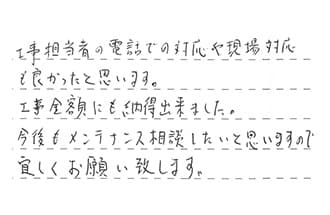 工事担当者の電話での対応や現場対応
も良かったと思います。
工事金額にも納得出来ました。
今後もメンテナンス相談したいと思いますので
宜しくお願い致します。